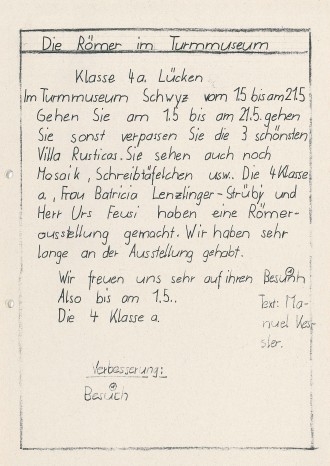 Die Römer im Turmmuseum
Klasse 4a. Lücken
Im Turmmuseum Schwyz vom 1.5 bis am 21.5
Gehen Sie am 1.5 bis am 21.5. gehen
Sie sonst verpassen Sie die 3 schönsten
Villa Rusticas. Sie sehen auch noch
Mosaik, Schreibtäfelchen usw. Die 4 Klasse
a, Frau Batricia Lenzlinger-Strüby und
Herr Urs Feusi haben eine Römer-
ausstellung gemacht. Wir haben sehr
lange an der Ausstellung gehabt.
Wir freuen uns sehr auf ihren Besuch
Also bis am 1.5..
Die 4 Klasse a.
Text: Ma-
nuel
sler.
Verbesserung:
Besuch